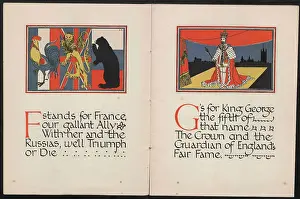 F stands for France,
our gallant Ally,
With her and the
Russias, we'll Triumph
or Die
G's for King George
the fifth of
that name
The Crown and the
Guardian of England's
Fair Fame.